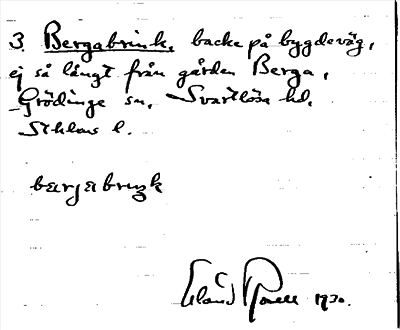 3 Bergabrink, backe på bygdeväg,
ej så långt från gården Berga,
Grödinge sn, Svartlösa hd,
Sthlms l.
bærjabrıŋk
1930.